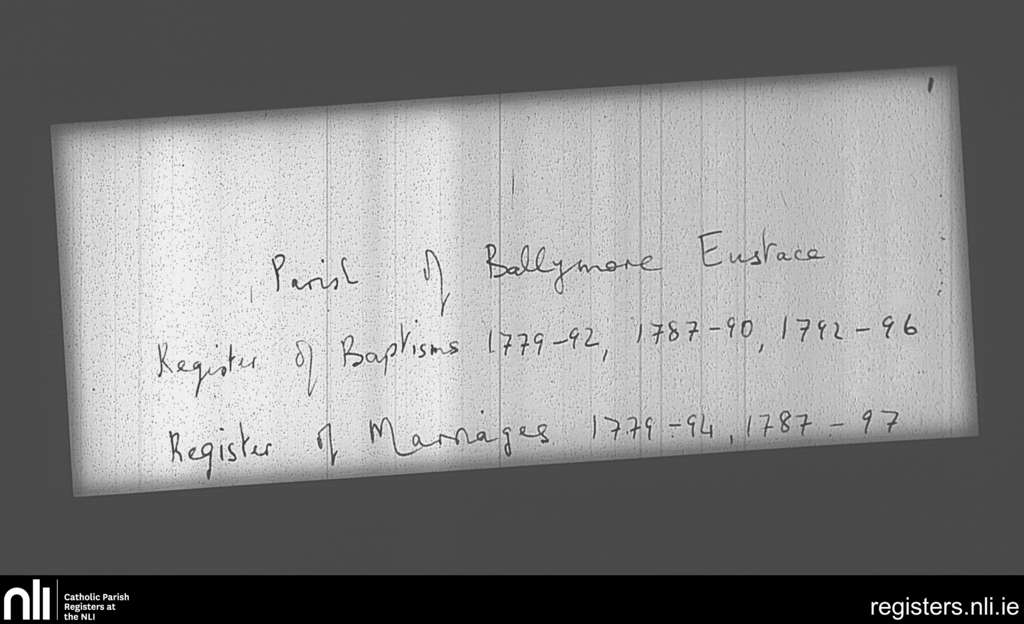 Parish of Ballymore Eustace
Register of Baptisms 1779-92, 1787-90, 1792-96
Register of Marriages 1779-94, 1787-97
nli
Catholic Parish
Registers at
the NLI
registers.nli.ie